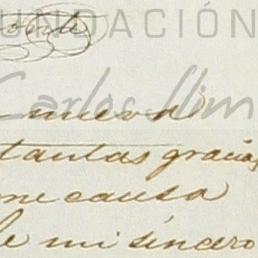 UNDACIÓN
Carlos Slim
nueva
tantas gracias
me causa
de mi sincero